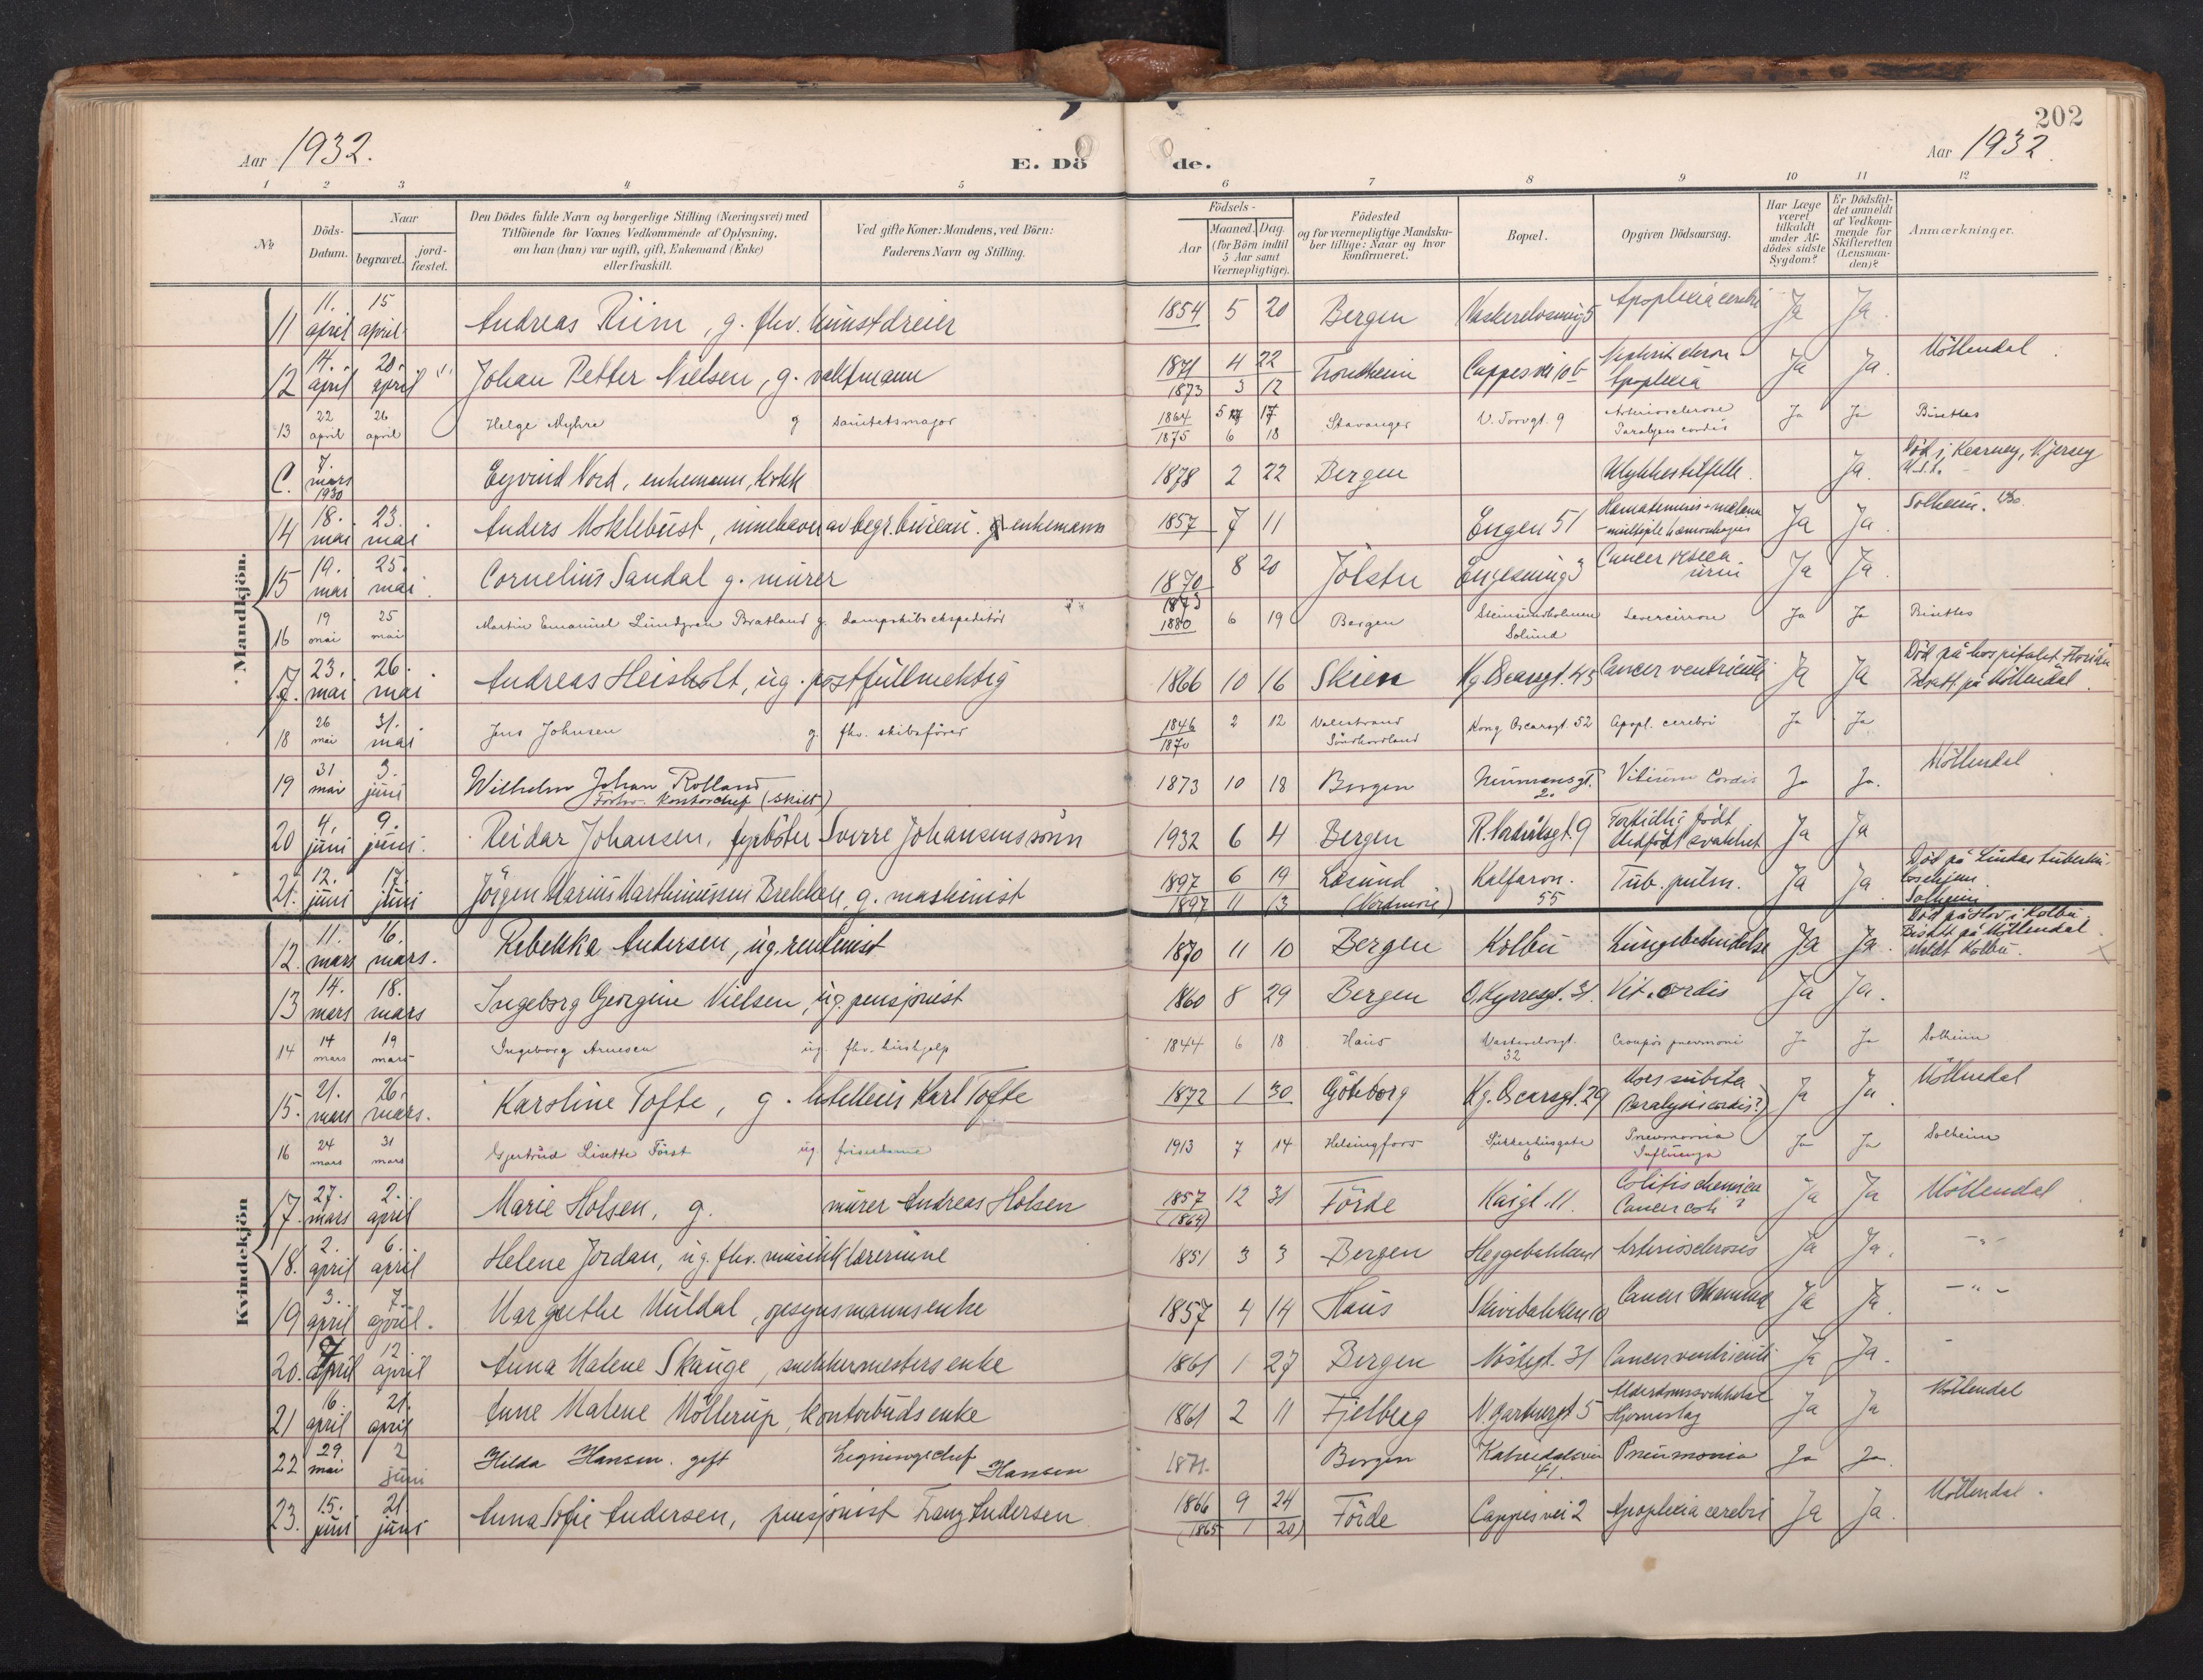 202
Aar 1932.
E. Döde.
Aar 1932.
1 2 3 4 5 6 7 8 9 10 11 12
No
Döds-Datum.
Naar begravet. jordfæstet.
Den Dödes fulde Navn og borgerlige Stilling (Næringsvei) med Tilföiende for Voxnes Vedkommende af Oplysning, om han (hun) var ugift, gift, Enkemand (Enke) eller fraskilt.
Ved gifte Koner: Mandens, ved Börn: Faderens Navn og Stilling.
Födsels-
Aar Maaned. Dag. (for Börn indtil 5 Aar samt Værnepligtige).
Födested og for værnepligtige Mandskaber tillige: Naar og hvor konfirmeret.
Bopæl.
Opgiven Dödsaarsag.
Har Læge været tilkaldt under Afdödes sidste Sygdom?
Er Dödsfaldet anmeldt af Vedkommende for Skifteretten (Lensmanden)?
Anmærkninger.
Mandkjön.
11 11. april 15 april Andreas Riim, g. fhv. kunstdreier 1854 5 20 Bergen Apoplexia cerebri Ja Ja.
12 14. april 20. april Johan Petter Nielsen, g. vaktmann 1871 4 22 1873 3 12 Trondheim Cappes vei 10 b Apoplexia Ja Ja. Möllendal
13 22 april 26 april Helge Myhre g sanitetsmajor 1864 5 17 1875 6 18 Stavanger V. Torvgt. 9 Arteriosclerose Paralysis cordis Ja Ja Bisettes
C. 7 mars 1930 Eyvind Nord, enkemann, kokk 1878 2 22 Bergen Ulykkestilfelle. Ja. Död i Kearney, N Jersey U.S.A.
14 18. mai 23. mai Anders Moklebust, innehaver av begr. bureau. enkemann 1857 7 11 Engen 51 Hæmatemesis + melæna multiple hæmorrhagier Ja Ja. Solheim.
15 19. mai 25. mai Cornelius Sandal g. murer 1870 1873 8 20 Jölster Engesmug 3 Cancer vesica urin Ja Ja.
16 19 mai 25 mai Martin Emanuel Lundgren Bratland g. dampskibsekspeditör 1880 6 19 Bergen Steinsundholmen Solund Levercirrose Ja Ja Bisettes
17. 23. mai 26. mai Andreas Heisholt, ug. postfullmektig 1866 10 16 Skien Kg Oscarsgt. 45 Cancer ventriculi Ja Ja Död på hospitalet Florida Bisatt på Möllendal.
18 26 mai 31. mai Jens Johnsen g. fhv. skibsförer 1846 2 12 1870 Valestrand Söndhordland Kong Oscarsgt 52 Apopl. cerebri Ja Ja
19 31 mai 3. juni Wilhelm Johan Rolland Forhv. kontorchef (skilt) 1873 10 18 Bergen Neumansgt. 2. Vitium Cordis Ja Ja. Möllendal
20 4. juni 9. juni. Reidar Johansen, fyrböter Sverre Johansens sönn 1932 6 4 Bergen 9 Fortidlig födt Medfödt svakhet Ja Ja
21. 12. juni 17. juni Jörgen Marius Marthinussen Brekken, g. maskinist 1897 6 19 1897 11 13 (Nordmöre) Kalfaron. 55 Tub. pulm. Ja Ja. Död på Lindås tuberkulosehjem. Solheim
Kvindekjön
12. 11. mars 16. mars. Rebekka Andersen, ug. rentenist 1870 11 10 Bergen Kolbu Lungebetendelse Ja Ja. Död i Kolbu, Bisatt på Möllendal meldt Kolbu.
13 14. mars 18. mars Ingeborg Georgine Nielsen, ug. pensjonist 1860 8 29 Bergen O. Kyrresgt. 31. Vit. cordis Ja Ja.
14 14 mars 19 mars Ingeborg Arnesen ug. fhv. hushjelp 1844 6 18 Haus 32 Croupös pneumoni Ja Ja Solheim
15. 21. mars 26. mars. Karoline Tofte, g. hotelleier Karl Tofte 1872 1 30 Göteborg Kg. Oscarsgt. 29 Mors subita (Paralysis cordis?) Ja Ja. Möllendal
16 24 mars 31 mars Gjertrud Lisette Först ug frisördame 1913 7 14 Helsingfors Sukkerhusgate 6 Pneumonia Influenza Ja Ja Solheim
17. 27. mars 2. april Marie Holsen, g. murer Andreas Holsen 1857 (1864) 12 31 Förde Kaigt. 11. Colitis chronica Cancer coli? Ja Ja Möllendal
18. 2. april 6. april Helene Jordan, ug. fhv. musikklærerinne 1851 3 3 Bergen Heggebakken Arteriosclerosis Ja Ja. - " -
19 3. april 7. april. Margrethe Muldal, opsynsmannsenke 1857 4 14 Haus Skivebakken 10 Cancer Mamma Ja Ja. - " -
20. 7 april 12 april Anna Malene Skauge, snekkermestersenke 1861 1 27 Bergen Nöstegt. 31 Cancer ventriculi Ja Ja.
21 16. april 21. april Anne Malene Möllerup, kontorbudsenke 1861 2 11 Fjelberg 5 Alderdomssvakhet Hjerneslag Ja Ja Möllendal
22 29 mai 2 juni Hilda Hansen. gift Ligningschef Hansen 1871. Bergen 41. Pneumonia Ja Ja
23. 15. juni 21. juni Anna Sofie Andersen, pensjonist Franz Andersen 1866 9 24 (1865 1 20) Förde Cappes vei 2 Apoplexia cerebri Ja Ja. Möllendal.